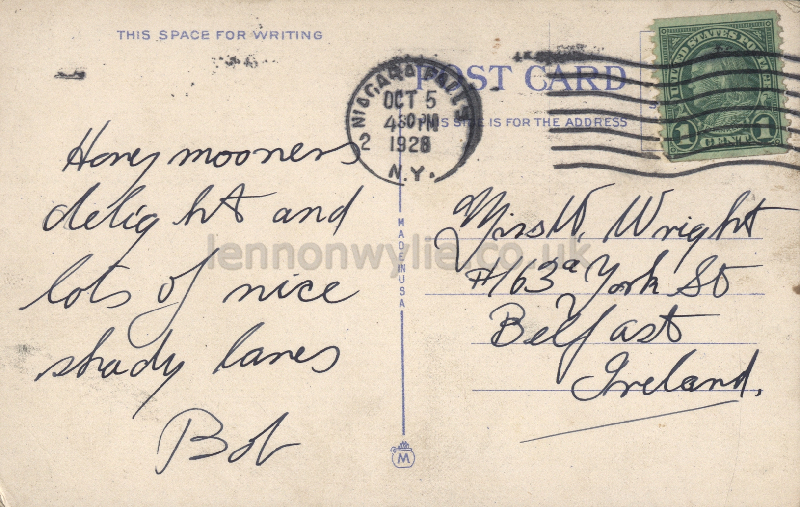 THIS SPACE FOR WRITING
POST CARD
THIS SIDE IS FOR THE ADDRESS
NIAGARA FALLS
OCT 5
4 30 PM
1928
N.Y.
2
UNITED STATES POSTAGE
1 CENT 1
Honey mooners
delight and
lots of nice
shady lanes
Bob
MADE IN USA
M
Miss W. Wright
#163a York St
Belfast
Ireland.
lennonwylie.co.uk